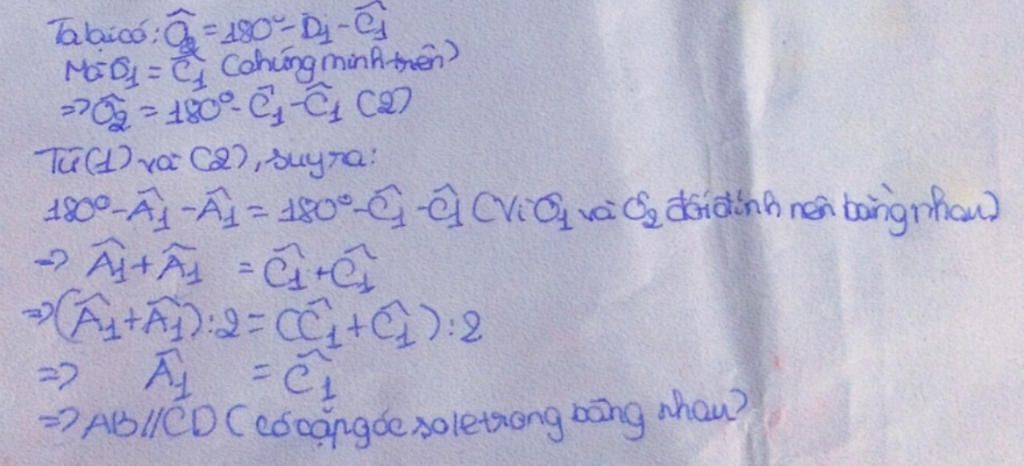 Ta lại có: Ô₂ = 180° - D₁ - Ĉ₁
Mà D̂₁ = Ĉ₁ (chứng minh trên)
=> Ô₂ = 180° - Ĉ₁ - Ĉ₁ (2)
Từ (1) và (2), suy ra:
180° - Â₁ - Â₁ = 180° - Ĉ₁ - Ĉ₁ (Vì Ô₁ và Ô₂ đối đỉnh nên bằng nhau)
=> Â₁ + Â₁ = Ĉ₁ + Ĉ₁
=> (Â₁ + Â₁) : 2 = (Ĉ₁ + Ĉ₁) : 2
=> Â₁ = Ĉ₁
=> AB//CD (có cặp góc so le trong bằng nhau)